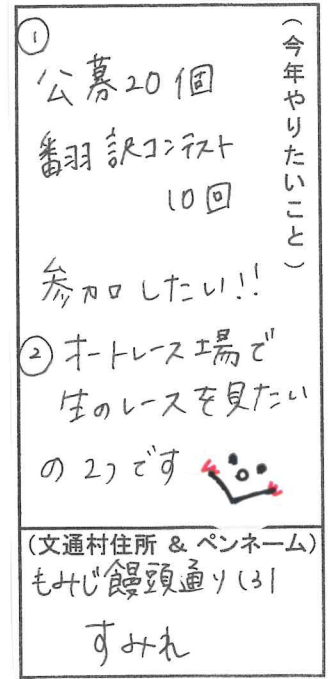 (今年やりたいこと)
①
公募20個
翻訳コンテスト
10回
参加したい!!
② オートレース場で
生のレースを見たい
の2つです
(文通村住所 & ペンネーム)
もみじ饅頭通り131
すみれ